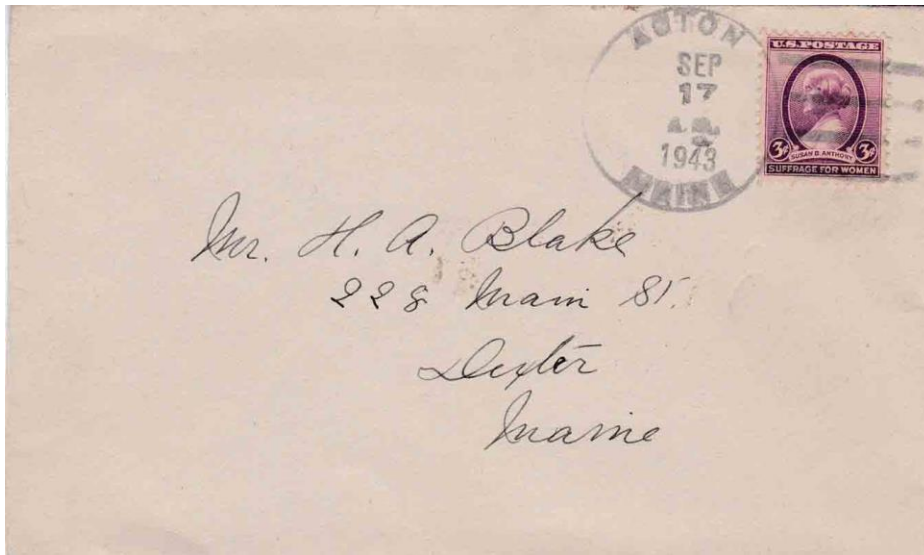 ACTON
SEP
17
A.M.
1943
MAINE
U.S. POSTAGE
3¢ SUSAN B. ANTHONY 3¢
SUFFRAGE FOR WOMEN
Mr. H. A. Blake
228 Main St.
Dexter
Maine